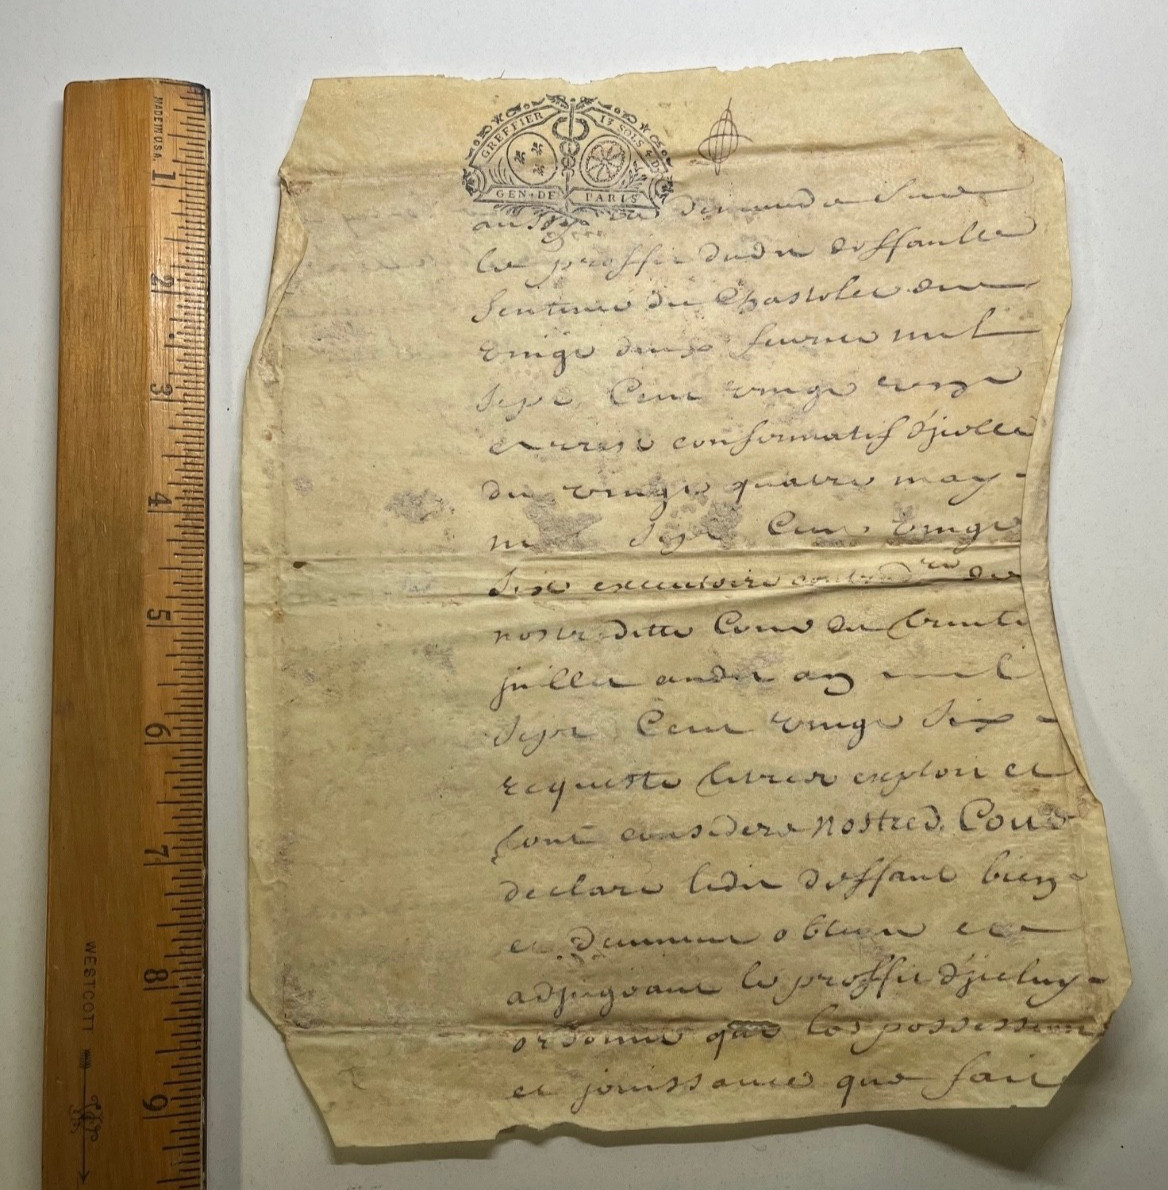 GREFFIER 13 SOLS 4 D
GEN · DE PARIS
demande
le proffit dudit deffault
Sentence du Chastelet du
vingt deux fevrier mil
Sept Cent vingt
arrest confirmatif d'jcelle
du vingt quatre may
mil Sept Cent vingt
Six executoire de
nostreditte Cour du trente
juillet audit an mil
Sept Cent vingt Six
requeste lettres exploit et
tout considere Nostred. Cour
declare ledit deffaut bien
et deument obtenu et
adjugeant le proffit d'jceluy
ordonne que les possession
et jouissance que fait
MADE IN U.S.A.
1
2
3
4
5
6
7
8
9
WESTCOTT